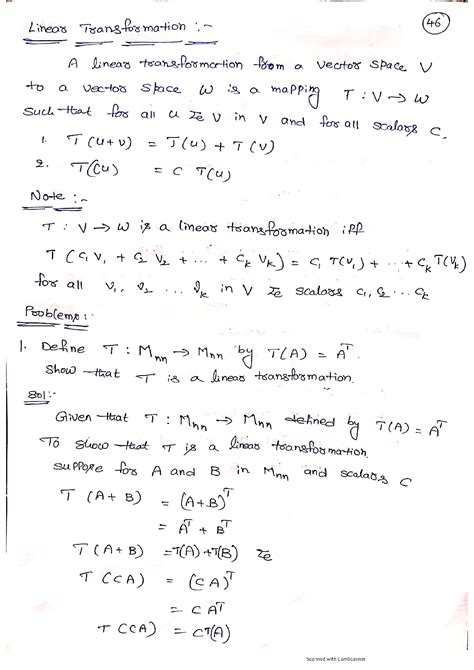 46
Linear Transformation :-
A linear transformation from a vector space V
to a vector space W is a mapping T : V → W
such that for all u & v in V and for all scalars C.
1. T (u+v) = T(u) + T(v)
2. T(Cu) = C T(u)
Note :-
T : V → W is a linear transformation iff
T (C₁ V₁ + C₂ V₂ + ... + Cₖ Vₖ) = C₁ T(V₁) + ... + Cₖ T(Vₖ)
for all V₁, V₂ ... Vₖ in V & scalars C₁, C₂ ... Cₖ
Problems :-
1. Define T : Mₙₙ → Mₙₙ by T(A) = Aᵀ.
Show that T is a linear transformation.
Sol :-
Given that T : Mₙₙ → Mₙₙ defined by T(A) = Aᵀ
To show that T is a linear transformation.
suppose for A and B in Mₙₙ and scalars C
T (A + B) = (A+B)ᵀ
= Aᵀ + Bᵀ
T (A + B) = T(A) + T(B) &
T (CA) = (CA)ᵀ
= C Aᵀ
T (CA) = CT(A)
Scanned with CamScanner